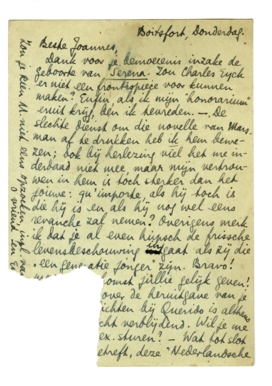 Boitsfort Donderdag.
Beste Joannes,
Dank voor je démocenis inzake de
geboorte van Serena. Zou Charles Eyck
er niet een frontispiece voor kunnen
maken? Enfin, als ik mijn honorarium
eruit krijg, ben ik tevreden. — De
slechte dienst om die novelle van Mars-
man af te drukken heb ik hem bewe-
zen; ook bij herlezing viel het me in-
derdaad niet mee, maar mijn vertrou-
wen in hem is toch sterker dan het
jouwe: qu'importe, als hij toch is
die hij is en als hij nog wel eens
revanche zal nemen? Overigens merk
ik dat je al even hupsch de frissche
levensbeschouwing ingaat als zij die
een generatie jonger zijn. Bravo!
komst jullie gelijk geven!
over de heruitgave van je
dichten bij Querido is althans
echt verblijdend. Wil je me
ex. sturen? — Wat het slot
betreft, deze "Nederlandsche
Zou je
niet eens
vriend